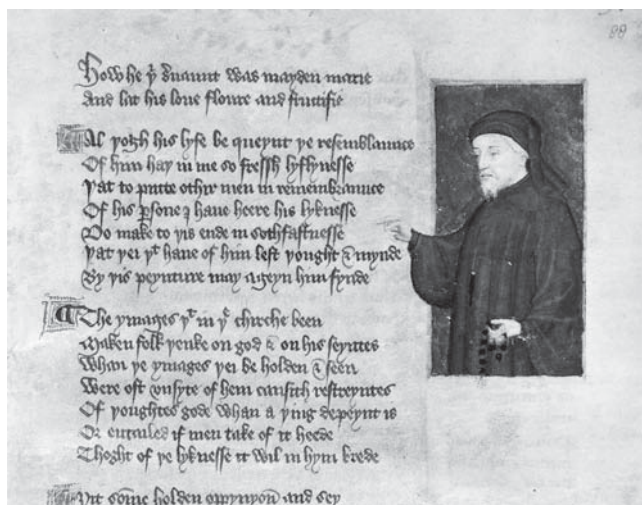 88
How he þi seruaunt was mayden marie
And lat his loue floure and fructifie
Al þogh his lyfe be queynt þe resemblaunce
Of him haþ in me so fressh lyflynesse
Þat to putte othir men in remembraunce
Of his persone I haue heere his lyknesse
Do make to þis ende in sothfastnesse
Þat þei þt haue of him lest þought & mynde
By þis peynture may ageyn him fynde
The ymages þt in þe chirche been
Maken folk þenke on god & on his seyntes
Whan þe ymages þei be holden & seen
Were oft vnsyte of hem causith restreyntes
Of þoughtes gode whan a þing depeynt is
Or entailed if men take of it heede
Thoght of þe lyknesse it wil in hym brede
Yit somme holden oppynyoun and sey